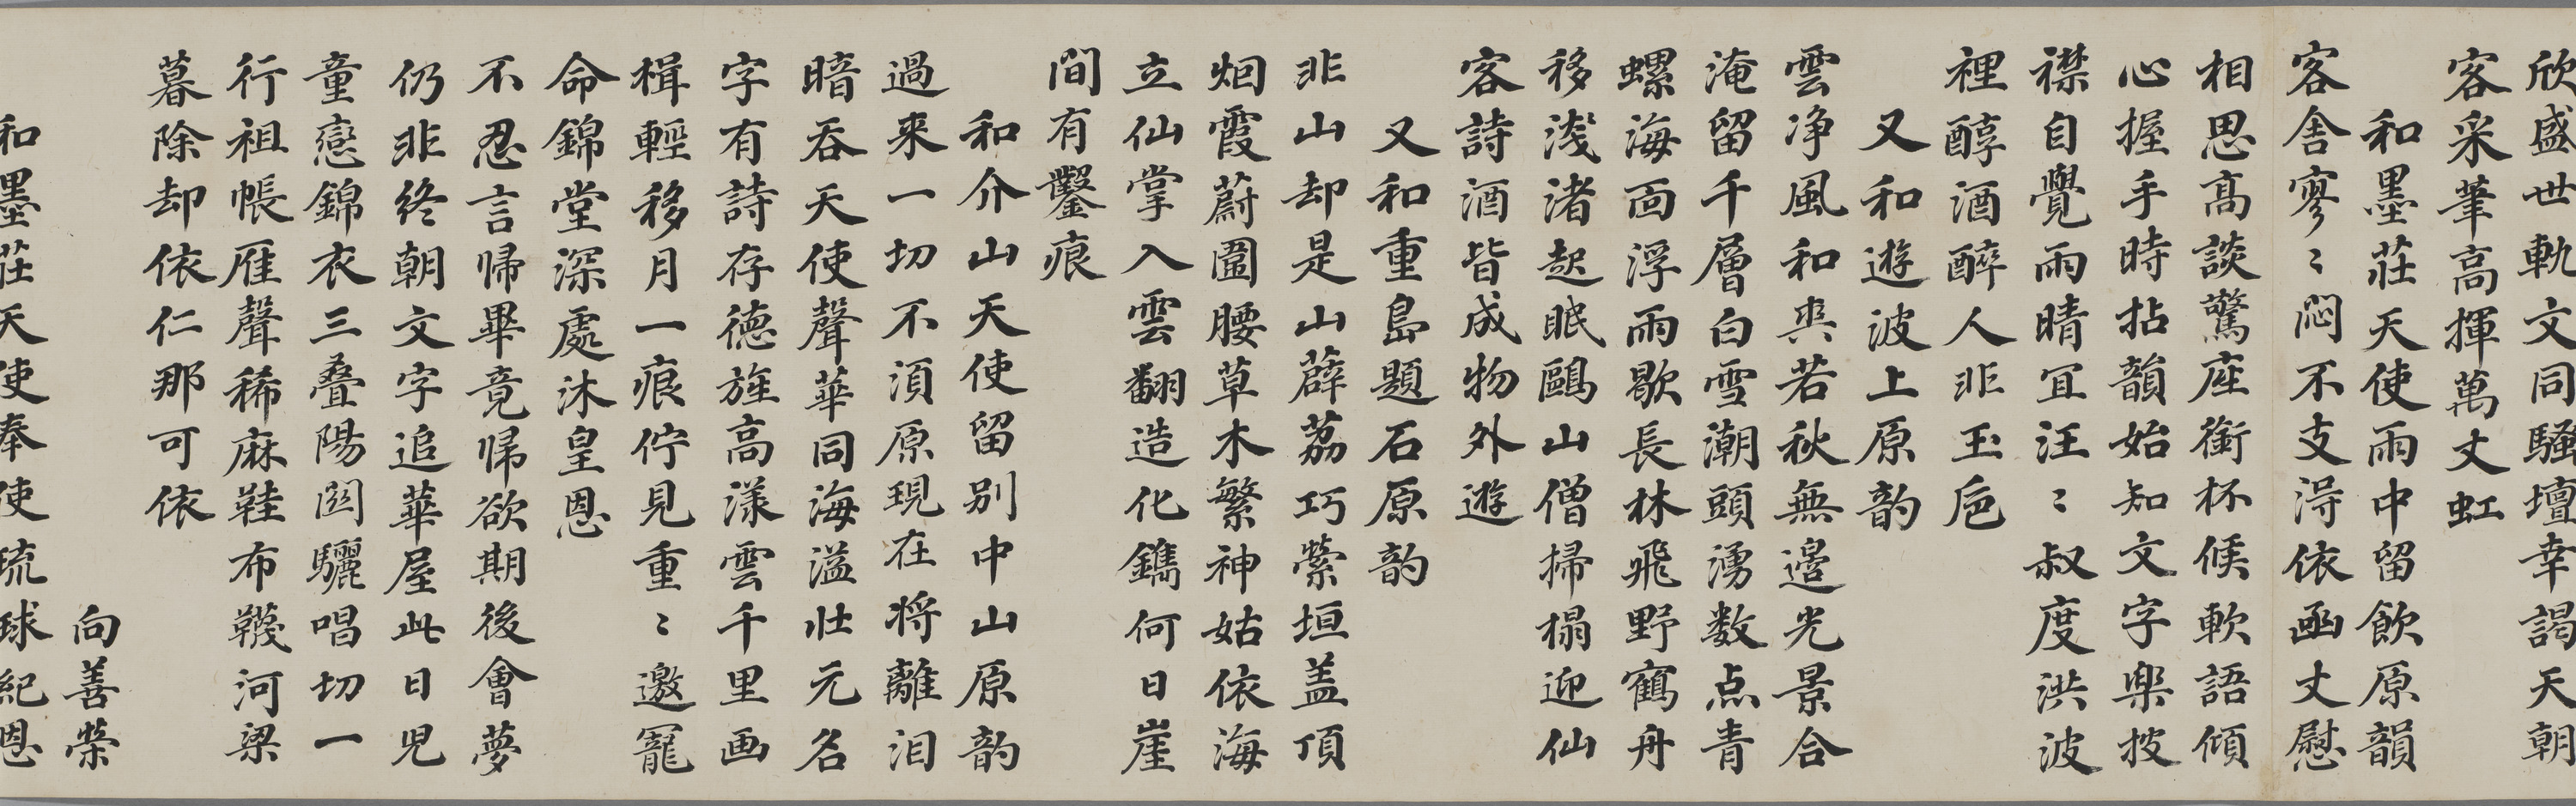 欣盛世軌文同騷壇幸謁天朝
客采筆高揮萬丈虹
和墨莊天使雨中留飲原韻
客舍寥〻悶不支淂依函丈慰
相思高談驚座銜杯候軟語傾
心握手時拈韻始知文字樂披
襟自覺雨晴宜汪〻叔度洪波
裡醇酒醉人非玉卮
又和遊波上原韵
雲净風和爽若秋無邊光景合
淹留千層白雪潮頭湧数点青
螺海面浮雨歇長林飛野鶴舟
移淺渚起眠鷗山僧掃榻迎仙
客詩酒皆成物外遊
又和重島題石原韵
非山却是山山薜荔巧縈垣盖頂
烟霞蔚圍腰草木繁神姑依海
立仙掌入雲翻造化鐫何日崖
間有鑿痕
和介山天使留别中山原韵
過来一切不湏原現在将離泪
暗吞天使聲華同海溢壯元名
字有詩存德旌高漾雲千里画
楫輕移月一痕佇見重〻邀寵
命錦堂深處沐皇恩
不忍言歸畢竟歸欲期後會夢
仍非終朝文字追華屋此日児
童戀錦衣三叠陽関驪唱切一
行祖帳雁聲稀麻鞋布韈河梁
暮除却依仁那可依
向善榮
和墨莊天使奉使琉球紀恩